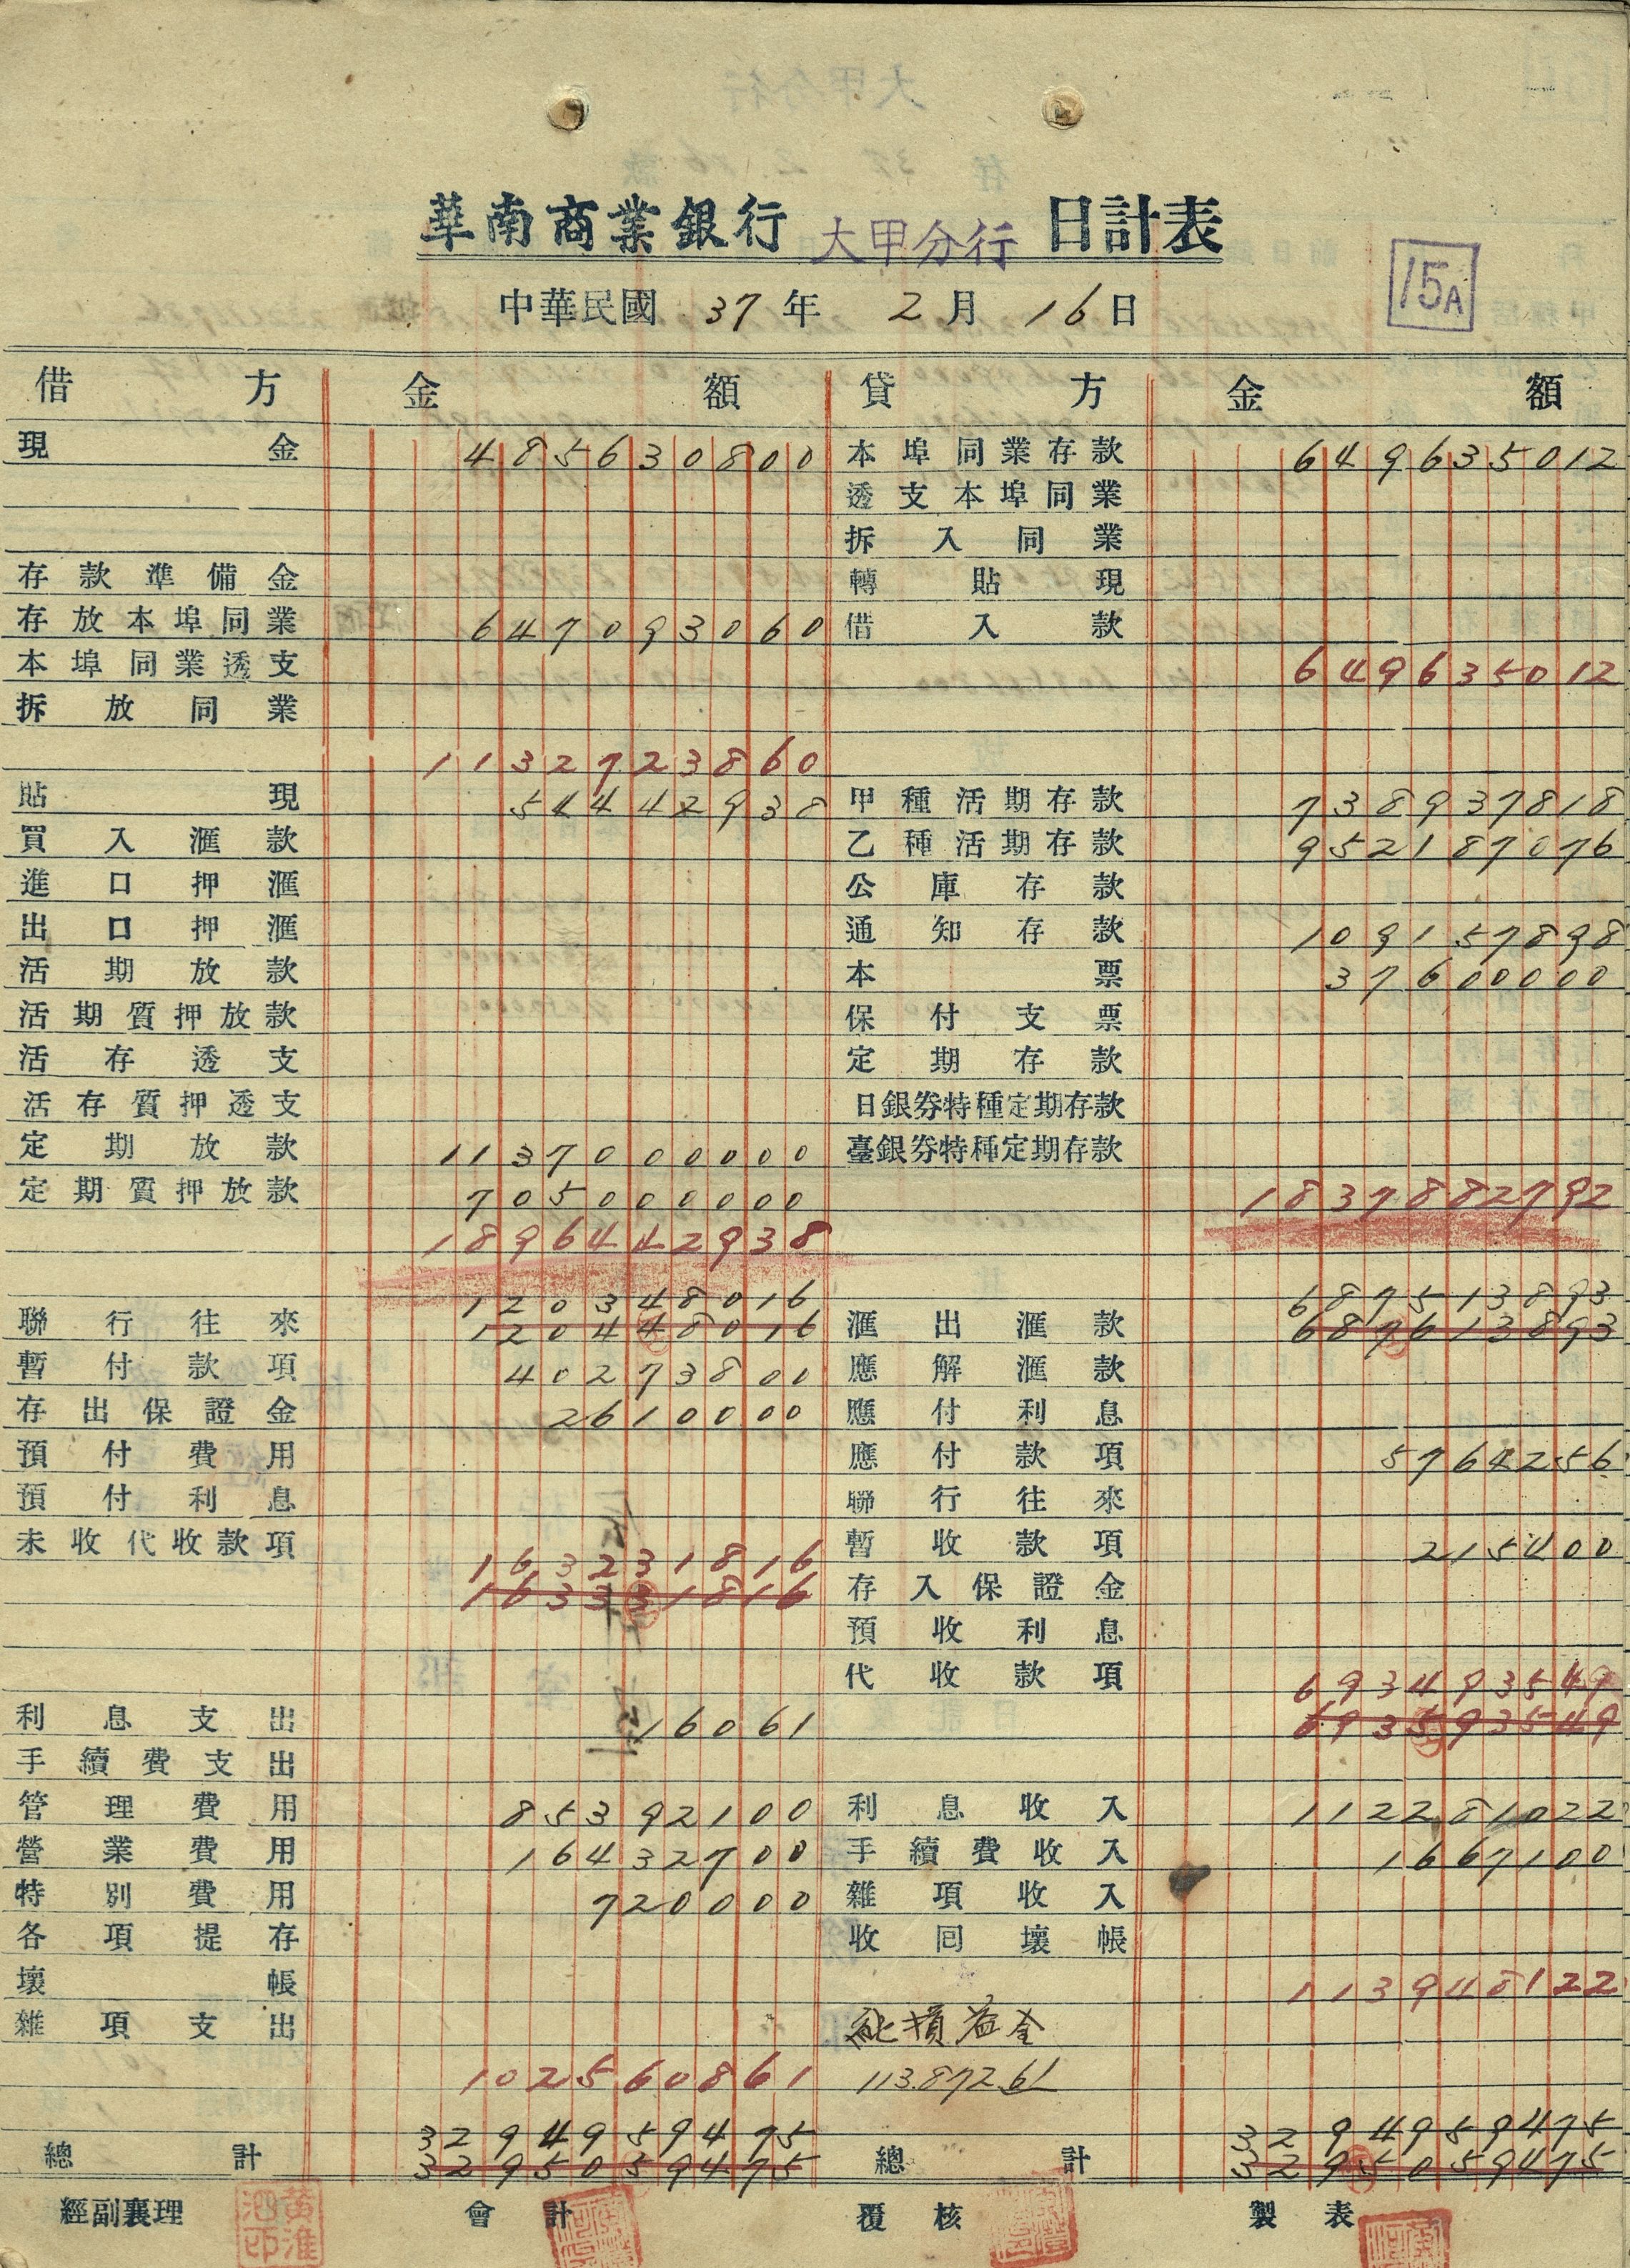 華南商業銀行 大甲分行 日計表
15A
中華民國 37 年 2 月 16 日
借方 金額 貸方 金額
現金 485630800 本埠同業存款 649635012
透支本埠同業
拆入同業
存款準備金 轉貼現
存放本埠同業 647093060 借入款
本埠同業透支 649635012
拆放同業
1132723860
貼現 54442938 甲種活期存款 738937818
買入滙款 乙種活期存款 952187076
進口押滙 公庫存款
出口押滙 通知存款 109157898
活期放款 本票 37600000
活期質押放款 保付支票
活存透支 定期存款
活存質押透支 日銀券特種定期存款
定期放款 1137000000 臺銀券特種定期存款
定期質押放款 705000000 1837882792
1896442938
120348016 687513893
聯行往來 120448016 滙出滙款 687613893
暫付款項 40273800 應解滙款
存出保證金 2610000 應付利息
預付費用 應付款項 5764256
預付利息 聯行往來
未收代收款項 163231816 暫收款項 215400
163331816 存入保證金
預收利息
代收款項 693493549
利息支出 16061 693593549
手續費支出
管理費用 85392100 利息收入 112281022
營業費用 16432700 手續費收入 1667100
特別費用 720000 雜項收入
各項提存 收回壞帳
壞帳 113948122
雜項支出 純損益金
102560861 113.872.61
3294959475 3294959475
總計 3295059475 總計 3295059475
經副襄理 會計 覆核 製表